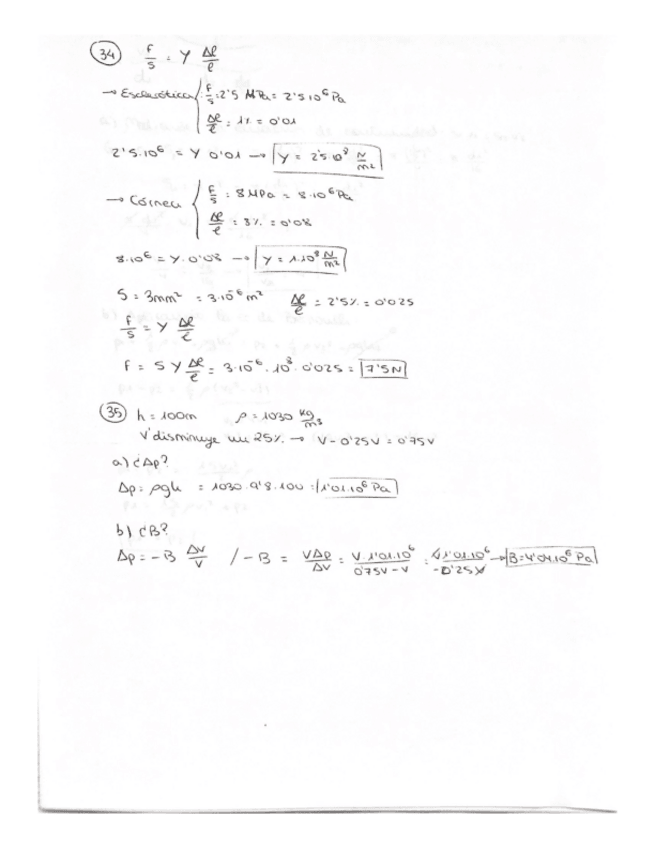 34 F/S = Y Δl/l
→ Esclerótica { F/S = 2'5 MPa = 2'5·10⁶ Pa
Δl/l = 1% = 0'01
2'5·10⁶ = Y 0'01 → Y = 2'5·10⁸ N/m²
→ Córnea { F/S = 8 MPa = 8·10⁶ Pa
Δl/l = 8% = 0'08
8·10⁶ = Y·0'08 → Y = 1·10⁸ N/m²
S = 3mm² = 3·10⁻⁶ m² Δl/l = 2'5% = 0'025
F/S = Y Δl/l
F = S Y Δl/l = 3·10⁻⁶·10⁸·0'025 = 7'5N
35 h = 100m ρ = 1030 kg/m³
V disminuye un 25% → V - 0'25V = 0'75V
a) ¿Δp?
Δp = ρgh = 1030·9'8·100 = 1'01·10⁶ Pa
b) ¿B?
Δp = -B ΔV/V / -B = VΔp/ΔV = V·1'01·10⁶/0'75V - V = V 1'01·10⁶/-0'25V → B = 4'04·10⁶ Pa